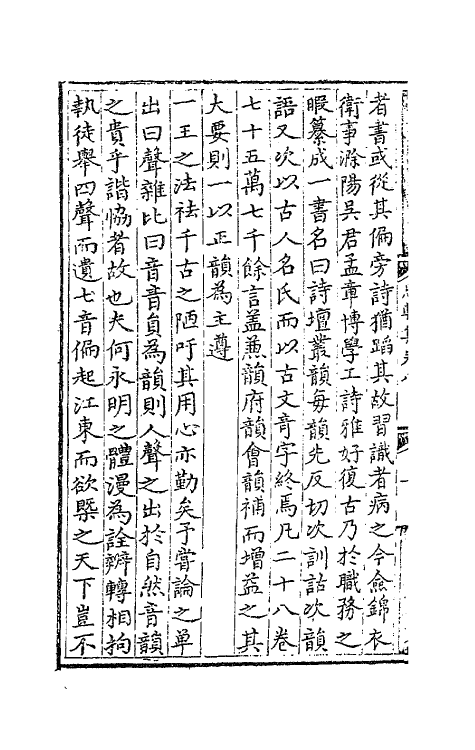 者書或從其偏旁詩猶蹈其故習識者病之今僉錦衣
衛事滁陽吳君孟章博學工詩雅好復古乃於職務之
暇纂成一書名曰詩壇叢韻每韻先反切次訓詁次韻
語又次以古人名氏而以古文竒字終焉凡二十八卷
七十五萬七千餘言盖兼韻府韻會韻補而増益之其
大要則一以正韻為主遵
一王之法袪千古之陋吁其用心亦勤矣予嘗論之單
出曰聲雜比曰音音員為韻則人聲之出於自然音韻
之貴乎諧恊者故也夫何永明之體漫為詮辨轉相拘
執徒舉四聲而遺七音偏起江東而欲槩之天下豈不